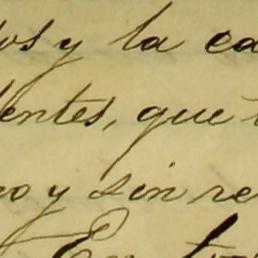 os y la ca
dentes, que
no y sin re
En to